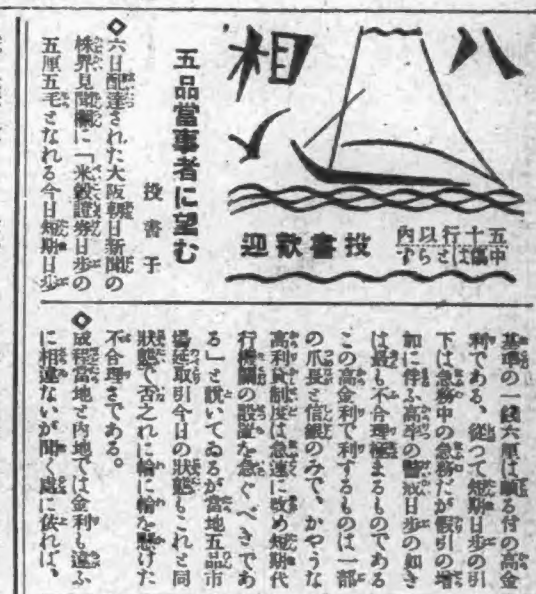 八
相
投書歓迎
五十行以内
中傷はとらず
五品當事者に望む
投書子
◇六日配達された大阪朝日新聞の
株界見聞欄に「米穀證券日歩の
五厘五毛となれる今日短期日歩
基準の一錢六厘は頗る付の高金
利である、從つて短期日歩の引
下は急務中の急務だが假引の增
加に伴ふ高率の警戒日歩の如き
は最も不合理極まるものである
この高金利で利するものは一部
の爪長と信銀のみで、かやうな
高利貸制度は急速に改め短期代
行機關の設置を急ぐべきであ
る」と說いてゐるが當地五品市
場延取引今日の狀態もこれと同
狀態で否之れに輪に輪を懸けた
不合理さである。
◇成程當地と内地では金利も違ふ
に相違ないが聞く處に依れば、